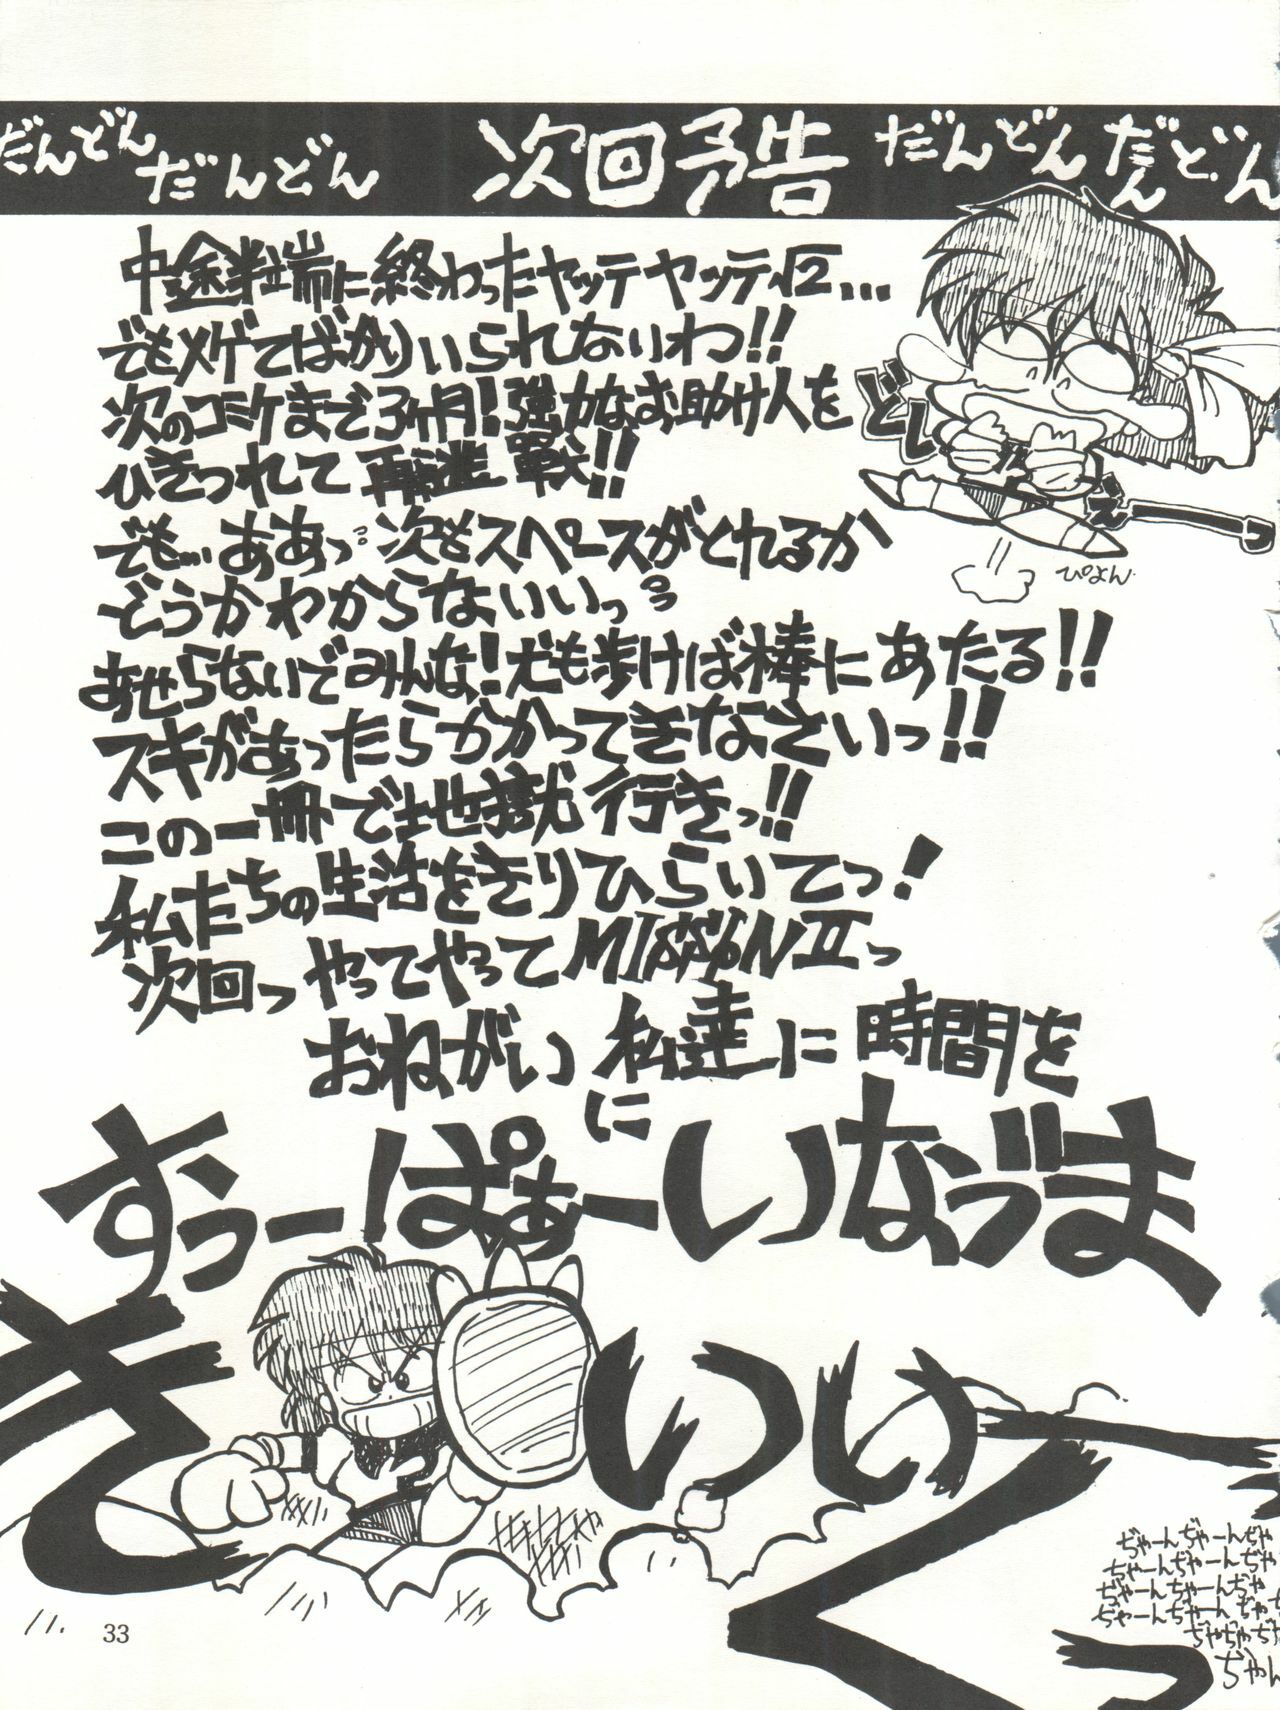 だんどん
だんどん
次回予告
だんどん
だんどん
中途半端に終わったヤッテヤッテ√2...
でもメゲてばかりいられないわ!!
次のコミケまで3ヶ月!強力なお助け人を
ひきつれて再挑戦!!
でも...ああっ...次もスペースがとれるか
どうかわからないいっ
あせらないでみんな!犬も歩けば棒にあたる!!
スキがあったらかかってきなさいっ!!
この一冊で地獄行きっ!!
私たちの生活をきりひらいてっ!
次回っやってやってMISSIONⅡっ
おねがい私達に時間を
に
すぅーぱぁーいなづま
きいっいくっ
どしえ
ぴょん
ぢゃーんぢゃーんぢゃ
ぢゃーんぢゃーんぢゃ
ぢゃーんぢゃーんぢゃ
ぢゃーんぢゃーんぢゃ
ぢゃぢゃぢ
ぢゃん
33